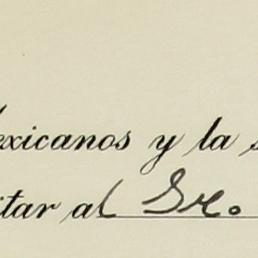 exicanos y la s
itar al Sr.